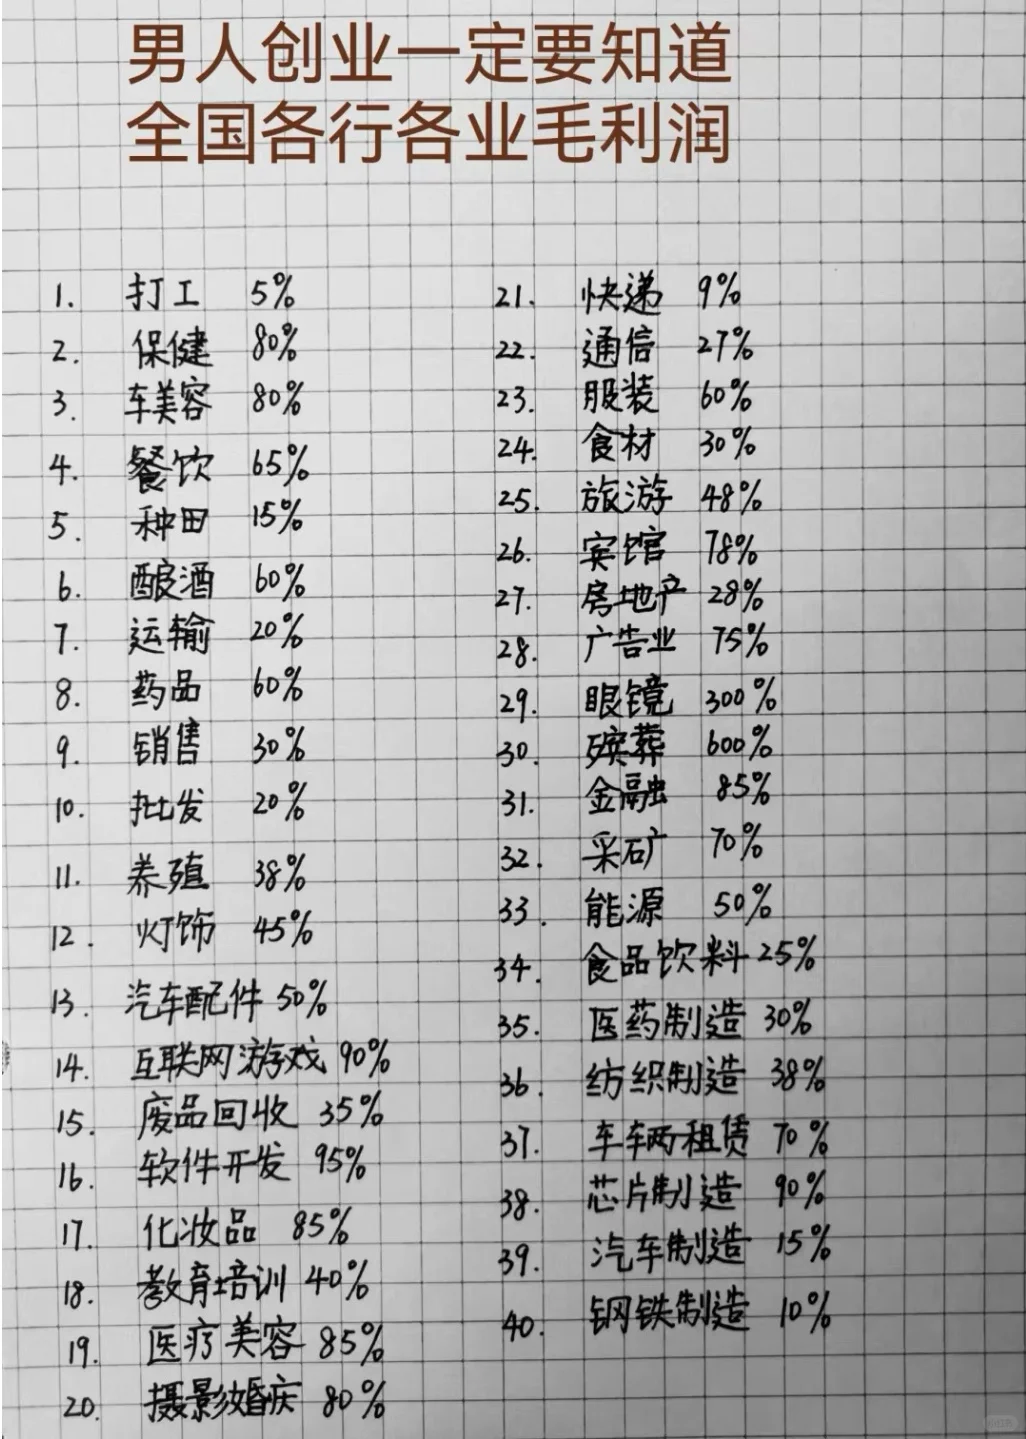 男人创业一定要知道
全国各行各业毛利润
1. 打工 5%
2. 保健 80%
3. 车美容 80%
4. 餐饮 65%
5. 种田 15%
6. 酿酒 60%
7. 运输 20%
8. 药品 60%
9. 销售 30%
10. 批发 20%
11. 养殖 38%
12. 灯饰 45%
13. 汽车配件 50%
14. 互联网游戏 90%
15. 废品回收 35%
16. 软件开发 95%
17. 化妆品 85%
18. 教育培训 40%
19. 医疗美容 85%
20. 摄影婚庆 80%
21. 快递 9%
22. 通信 27%
23. 服装 60%
24. 食材 30%
25. 旅游 48%
26. 宾馆 78%
27. 房地产 28%
28. 广告业 75%
29. 眼镜 300%
30. 殡葬 600%
31. 金融 85%
32. 采矿 70%
33. 能源 50%
34. 食品饮料 25%
35. 医药制造 30%
36. 纺织制造 38%
37. 车车两租赁 70%
38. 芯片制造 90%
39. 汽车制造 15%
40. 钢铁制造 10%